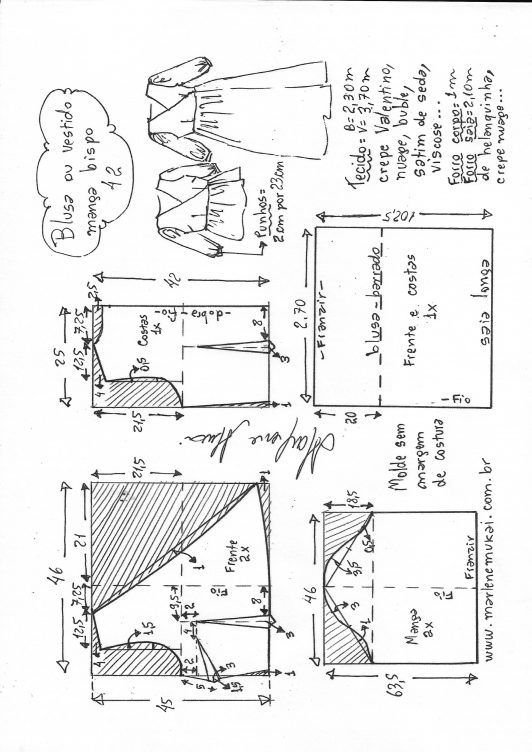 Blusa ou vestido
manga bispo
42
Punhos=
2cm por 23cm
Tecido= B=2,30m
= V= 3,70m
crepe Valentino,
nuage, buble,
satim de seda,
viscose...
Forro corpo=1m
Forro saia=2,10m
de helanquinha,
crepe nuage...
25
12,5
7,25
2,5
42
4
21,5
0,5
Costas
1x
-dobra-
Fio
8
3
1
102,5
2,70
-Franzir-
blusa-barrado
Frente e costas
1x
saia longa
20
Fio
Marlene Mukai
Molde sem
margem
de costura
46
12,5
7,25
21
21,5
4
1,5
1
1
Frente
2x
Fio
6,5
2
8
2
3
5
1,5
3
1
45
46
18,5
0,5
3,5
3
1
Manga
2x
Fio
Franzir
63,5
www.marlenemukai.com.br